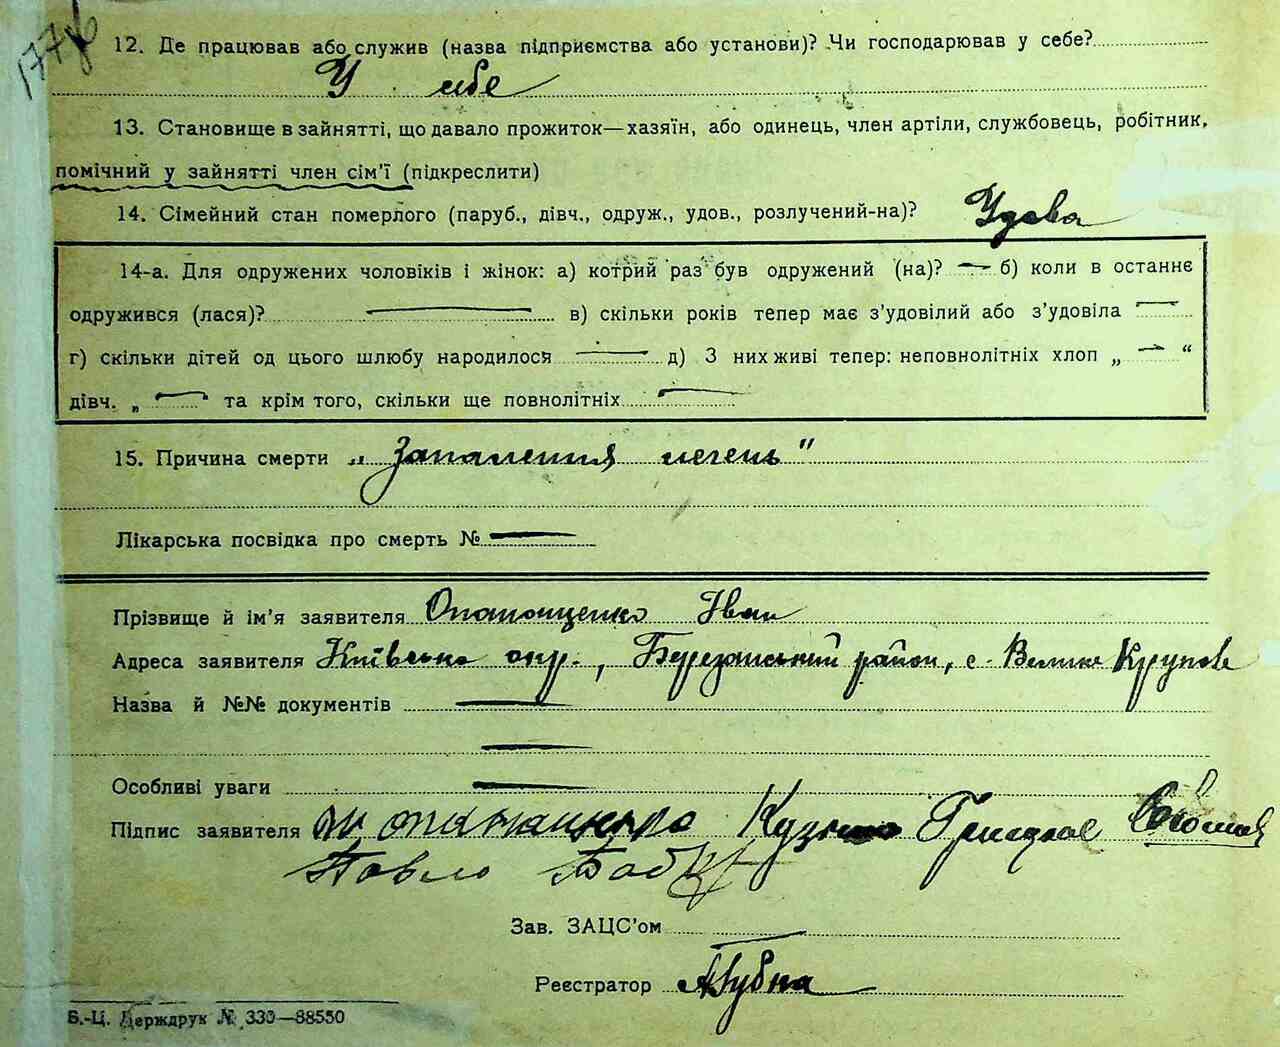 177
12. Де працював або служив (назва підприємства або установи)? Чи господарював у себе?
У себе
13. Становище в зайнятті, що давало прожиток—хазяїн, або одинець, член артіли, службовець, робітник,
помічний у зайнятті член сім'ї (підкреслити)
14. Сімейний стан померлого (паруб., дівч., одруж., удов., розлучений-на)? Удова
14-а. Для одружених чоловіків і жінок: а) котрий раз був одружений (на)? — б) коли в останнє
одружився (лася)? — в) скільки років тепер має з'удовілий або з'удовіла —
г) скільки дітей од цього шлюбу народилося — д) З них живі тепер: неповнолітніх хлоп „ — “
дівч. „ — “ та крім того, скільки ще повнолітніх —
15. Причина смерти „Запалення легень"
Лікарська посвідка про смерть № —
Прізвище й ім'я заявителя Опанащенко Іван
Адреса заявителя Київська окр., Березанський район, с. Велике Крупове
Назва й №№ документів —
—
Особливі уваги —
Підпис заявителя
Павло
Зав. ЗАЦС'ом —
Реєстратор
Б.-Ц. Держдрук № 333—88550